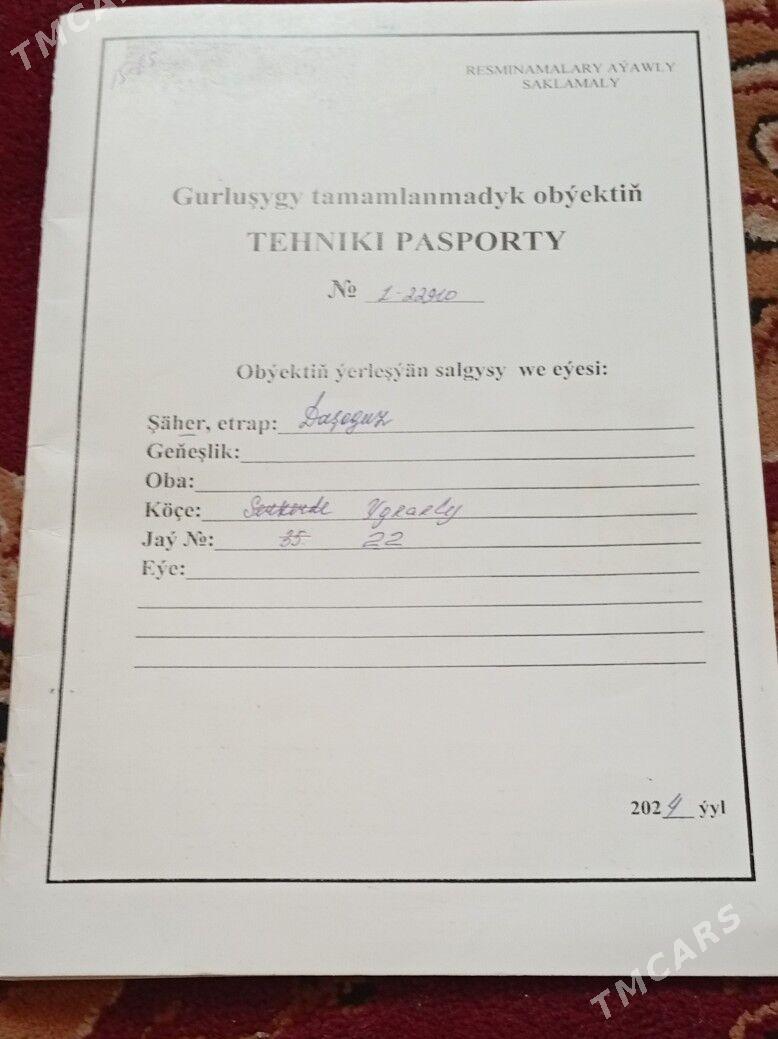 TMCARS
RESMINAMALARY AÝAWLY
SAKLAMALY
Gurluşygy tamamlanmadyk obýektiň
TEHNIKI PASPORTY
№ 1-22910
Obýektiň ýerleşýän salgysy we eýesi:
Şäher, etrap: Daşoguz
Geňeşlik:
Oba:
Köçe: Ygrarly
Jaý №: 35 22
Eýe:
2024 ýyl
TMCARS